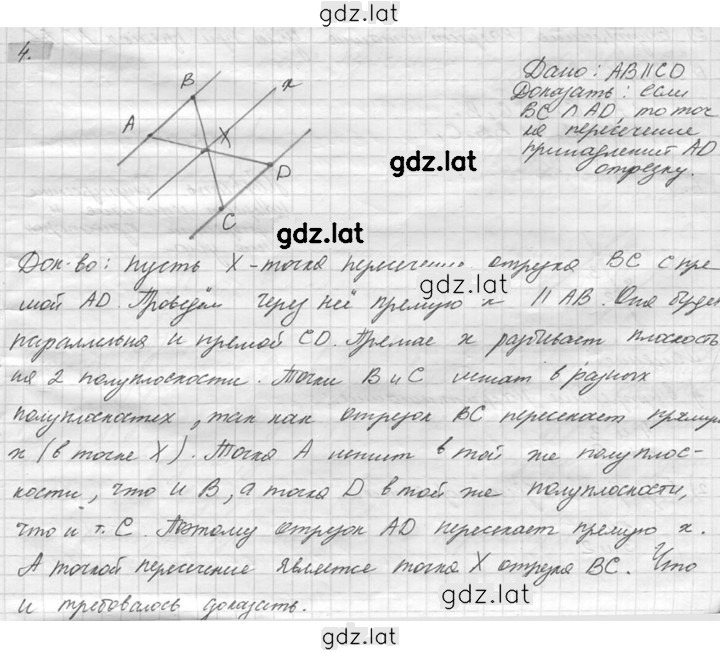 gdz.lat
4.
B
x
A
X
D
C
Дано: AB||CD
Доказать: если
BC ∩ AD, то точ
ка пересечение
принадлежит AD
отрезку.
gdz.lat
gdz.lat
Док-во: пусть X - точка пересечения отрезка BC с пря
мой AD. Проведём через неё прямую x || AB. Она будет
gdz.lat
параллельна и прямой CD. Прямая x разбивает плоскость
на 2 полуплоскости. Точки B и C лежат в разных
полуплоскостях, так как отрезок BC пересекает прямую
x (в точке X). Точка A лежит в той же полуплос-
кости, что и B, а точка D в той же полуплоскости,
что и т. C. Поэтому отрезок AD пересекает прямую x.
А точкой пересечение является точка X отрезка BC. Что
и требовалось доказать.
gdz.lat
gdz.lat